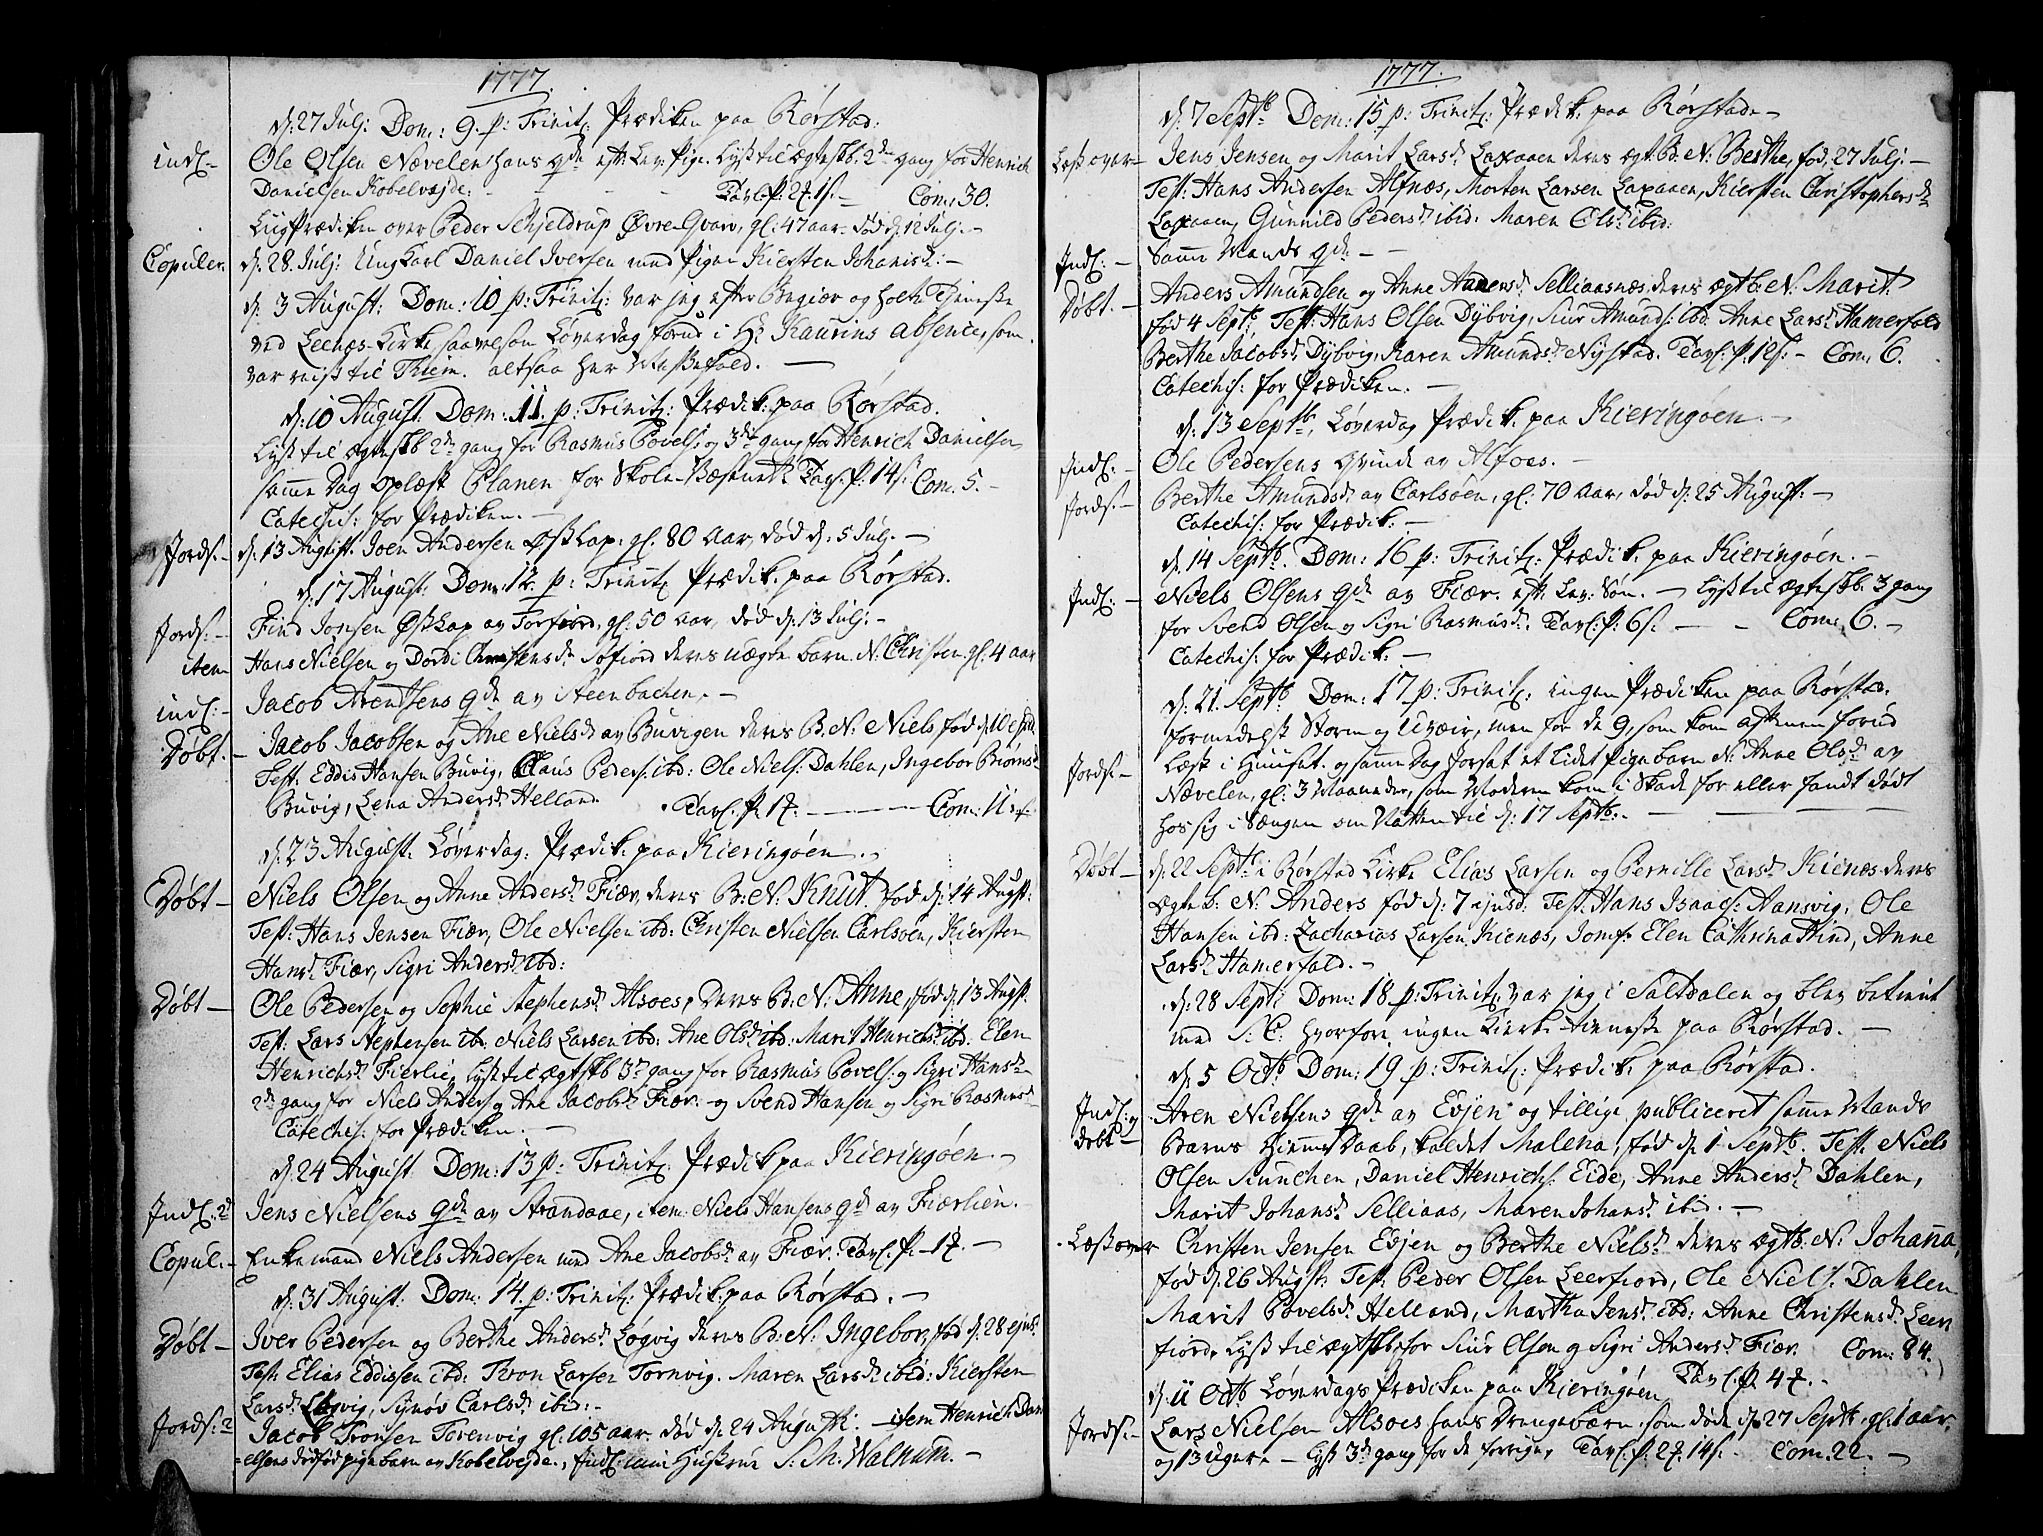 1777.
d: 27 Julj: Dom: 9. p: Trinit: Prædiken paa Rørstad:
indl. - Ole Olsen Nævelen hans qde eft: Lev: Pige. Lyst til ægteskb: 2de gang for Henrich
Danielsen Kobelvejde: - - - - Tavl: p: 2 1s. - Com: 30.
Liig Prædiken over Peder Schjeldrup Øvre Qvarv, gl: 47 aar. død d: 12 Julj. -
Copuler. d: 28. Julj: Ung Karl Daniel Iversen med Pigen Kiersten Johanisd: -
d: 3 August: Dom: 10 p: Trinit: var jeg efter Begiær og holt Tjeneste
ved Leenæs-Kirke saavelsom Løverdag forud i Hr: Kaurins absence, som
var reist til Thiem. altsaa her Messefald. -
d: 10 August. Dom: 11. p: Trinit: Prædik: paa Rørstad.
Lyst til ægteskb 2de gang for Rasmus Povels: og 3de gang for Henrich Danielsen,
samme Dag oplæst Planen for Skole-Væsenet. Tavl: p: 14s: Com: 5. -
Catechis: for Prædiken. -
Jords. - d: 13 August. Joen Andersen Østlap: gl: 80 Aar, død d: 5 Julj. -
d: 17 August: Dom: 12. p: Trinit: Prædik: paa Rørstad.
Jords: - Find Jonsen Østlap av Torfiord, gl: 50 aar, død d: 13 Julj: -
item Hans Nielsen og Dordi Christensd: Sofiord deres uægte barn. N: Christen. gl: 4 aar
indl: - Jacob Arentsens qde av Steenbachen. -
Døbt. - Jacob Jacobsen og Ane Nielsd: av Buvigen deres B: N: Niels fød d: 10
Test: Eddis Hansen Buvig, Claus Peders: ibd: Ole Niels: Dahlen, Ingebor Biørnsd:
Buvig, Lena Andersd: Helland. Tavl: p: 1 - Com: 11.
d: 23 August. Løverdag: Prædik: paa Kieringøen. -
Døbt - Niels Olsen og Anne Andersd: Fiær, deres B: N: Knut, fød d: 14 August:
Test: Hans Jensen Fiær, Ole Nielsen ibd: Christen Nielsen Carlsøen, Kiersten
Hansd: Fiær, Sigri Andersd: ibd:
Døbt - Ole Pedersen og Sophie Stephensd: Alsoes, deres B: N: Anne, fød d: 13 Augst.
Test: Lars Stephensen ibd: Niels Larsen ibd: Ane Olsd: ibd: Marit Henrichsd: ibd: Elen
Henrichsd: Fierlie, Lyst til ægtskb 3de gang for Rasmus Povels: og Sigri Hansd:
2de gang for Niels Anders: og Ane Jacobsd: Fiær. - og Svend Hansen og Sigri Rasmusd: -
Catechis: for Prædiken. -
d: 24 August Dom: 13 p: Trinit: Prædik paa Kieringøen -
Indl: 2de Jens Nielsens qde av Strandaae, item Niels Hansens qde av Fiærlien. -
Copul. - Enkemand Niels Andersen med Ane Jacobsd: av Fiær. Tavl: p: 1 -
d: 31 August: Dom: 14. p: Trinit: Prædik: paa Rørstad. -
Døbt - Iver Pedersen og Berthe Andersd: Løgvig deres B: N: Ingebor, fød d: 28 ejusd:
Test: Elias Eddissen ibd: Tron Larsen Tornvig. Maren Larsd: ibid: Kiersten
Larsd: Løgvig, Synøv Carlsd: ibid: -
Jords: 2 Jacob Tronsen Torenvig gl: 105 aar. død d: 24 August: - item Henrich Dani
elsens dødfød pigebarn av Kobelvejde., Indl: min Hustrue S: M: Walnum. -
1777.
d: 7 Septb: Dom: 15 p: Trinit: Prædik: paa Rørstad. -
Læst over - Jens Jensen og Marit Larsd: Laxaaen deres ægt: B: N: Berthe, fød: 27 Julj: -
Test: Hans Andersen Alfnæs, Morten Larsen Laxaaen, Kiersten Christophersd:
Laxaaen, Gunnild Pedersd: ibid: Maren Olsd: ibid:
Indl: - Samme Mands qde -
Døbt. - Anders Amundsen og Anne Arensd: Selliaasnæs, deres ægtb: N: Marit:
fød 4 Septb: Test: Hans Olsen Dybvig, Siur Amunds: ibd: Anne Larsd: Hamerfald
Berthe Jacobsd: Dybvig, Karen Amundsd: Nystad. Tavl: p: 12s: - Com: 6.
Catechis: for Prædiken. -
d: 13 Septb:, Løverdag Prædik: paa Kieringøen. -
Indl: - Ole Pedersens Qvinde av Alsoes. -
Jords. - Berthe Amundsd: av Carlsøen, gl: 70 aar, død d: 25 August: -
Catechis: for Prædik: -
d: 14 Septb. Dom: 16 p: Trinit: Prædik: paa Kieringøen. -
Indl: - Niels Olsens qde av Fiær. eft: Lev: Søn. - Lyst til ægteskb. 3 gang
for Svend Olsen og Sigri Rasmusd: Tavl: p: 6s. - - Com: 6. -
Catechis: for Prædik: -
d: 21. Septb. Dom: 17 p: Trinit: ingen Prædiken paa Rørstad.
formedelst Storm og Uvæir, men for de 9, som kom aftenen forud
Læst i Huuset. og samme Dag
Jords: - forsat et Lidet Pigebarn N: Anne Olsd: av
Nævelen, gl: 3 Maaneder, som Moderen kom i Skade for eller fandt dødt
hos sig i Sængen om Natten til d: 17 Septb. -
Døbt - d: 22 Septb: i Rørstad Kirke Elias Larsen og Pernille Larsd: Kienæs deres
ægte b: N: Anders fød d: 7 ejusd: Test: Hans Isaacs: Hansvig, Ole
Hansen ibd: Zacharias Larsen, Kienæs, Jomf: Elen Cathrina Hind, Anne
Larsd: Hamerfald. -
d: 28 Septb: Dom: 18 p: Trinit: var jeg i Saltdalen og blev betient
med S: C: hvorfore ingen Kierke-tieneste paa Rørstad. -
d: 5 Octb: Dom: 19 p: Trinit: Prædik: paa Rørstad.
Indl: og Aren Nielsens qde av Evjen og tillige publiceret samme Mands
døbt - Barns Hiemme Daab, kaldet Malena, fød d: 1 Septb. Test: Niels
Olsen Munchen, Daniel Henrichs: Eide, Anne Andersd: Dahlen,
Marit Johansd: Selliaas, Maren Johansd: ibid. -
Læst over Christen Jensen Evjen og Berthe Nielsd: deres ægtb: N: Johanna,
fød d: 26 August: Test: Peder Olsen Leerfiord, Ole Niels: Dahlen
Marit Povelsd: Helland, Martha Jensd: ibd: Anne Christensd: Leer
fiord, Lyst til ægtskb: for Siur Olsen og Sigri Andersd: Fiær. Com: 84.
d: 11 Octb: Løverdags Prædiken paa Kieringøen Tavl: p: 4 -
Jords. - Lars Nielsen Alsoes hans Drengebarn, som døde d: 27 Septb: gl: 1 aar.
og 13 Uger. - Lyst 3de gang for de forrige, Tavl: p: 2 14s. - Com: 22. -